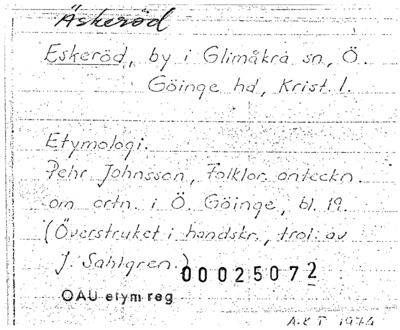 Äskeröd
Eskeröd, by i Glimåkra sn., Ö.
Göinge hd, Krist. l.
Etymologi.
Pehr Johnsson, Folklor. anteckn.
om ortn. i Ö. Göinge, bl. 19.
(Överstruket i handskr., trol. av
J. Sahlgren.)
00025072
OAU etym reg.
A.K.T. 1974